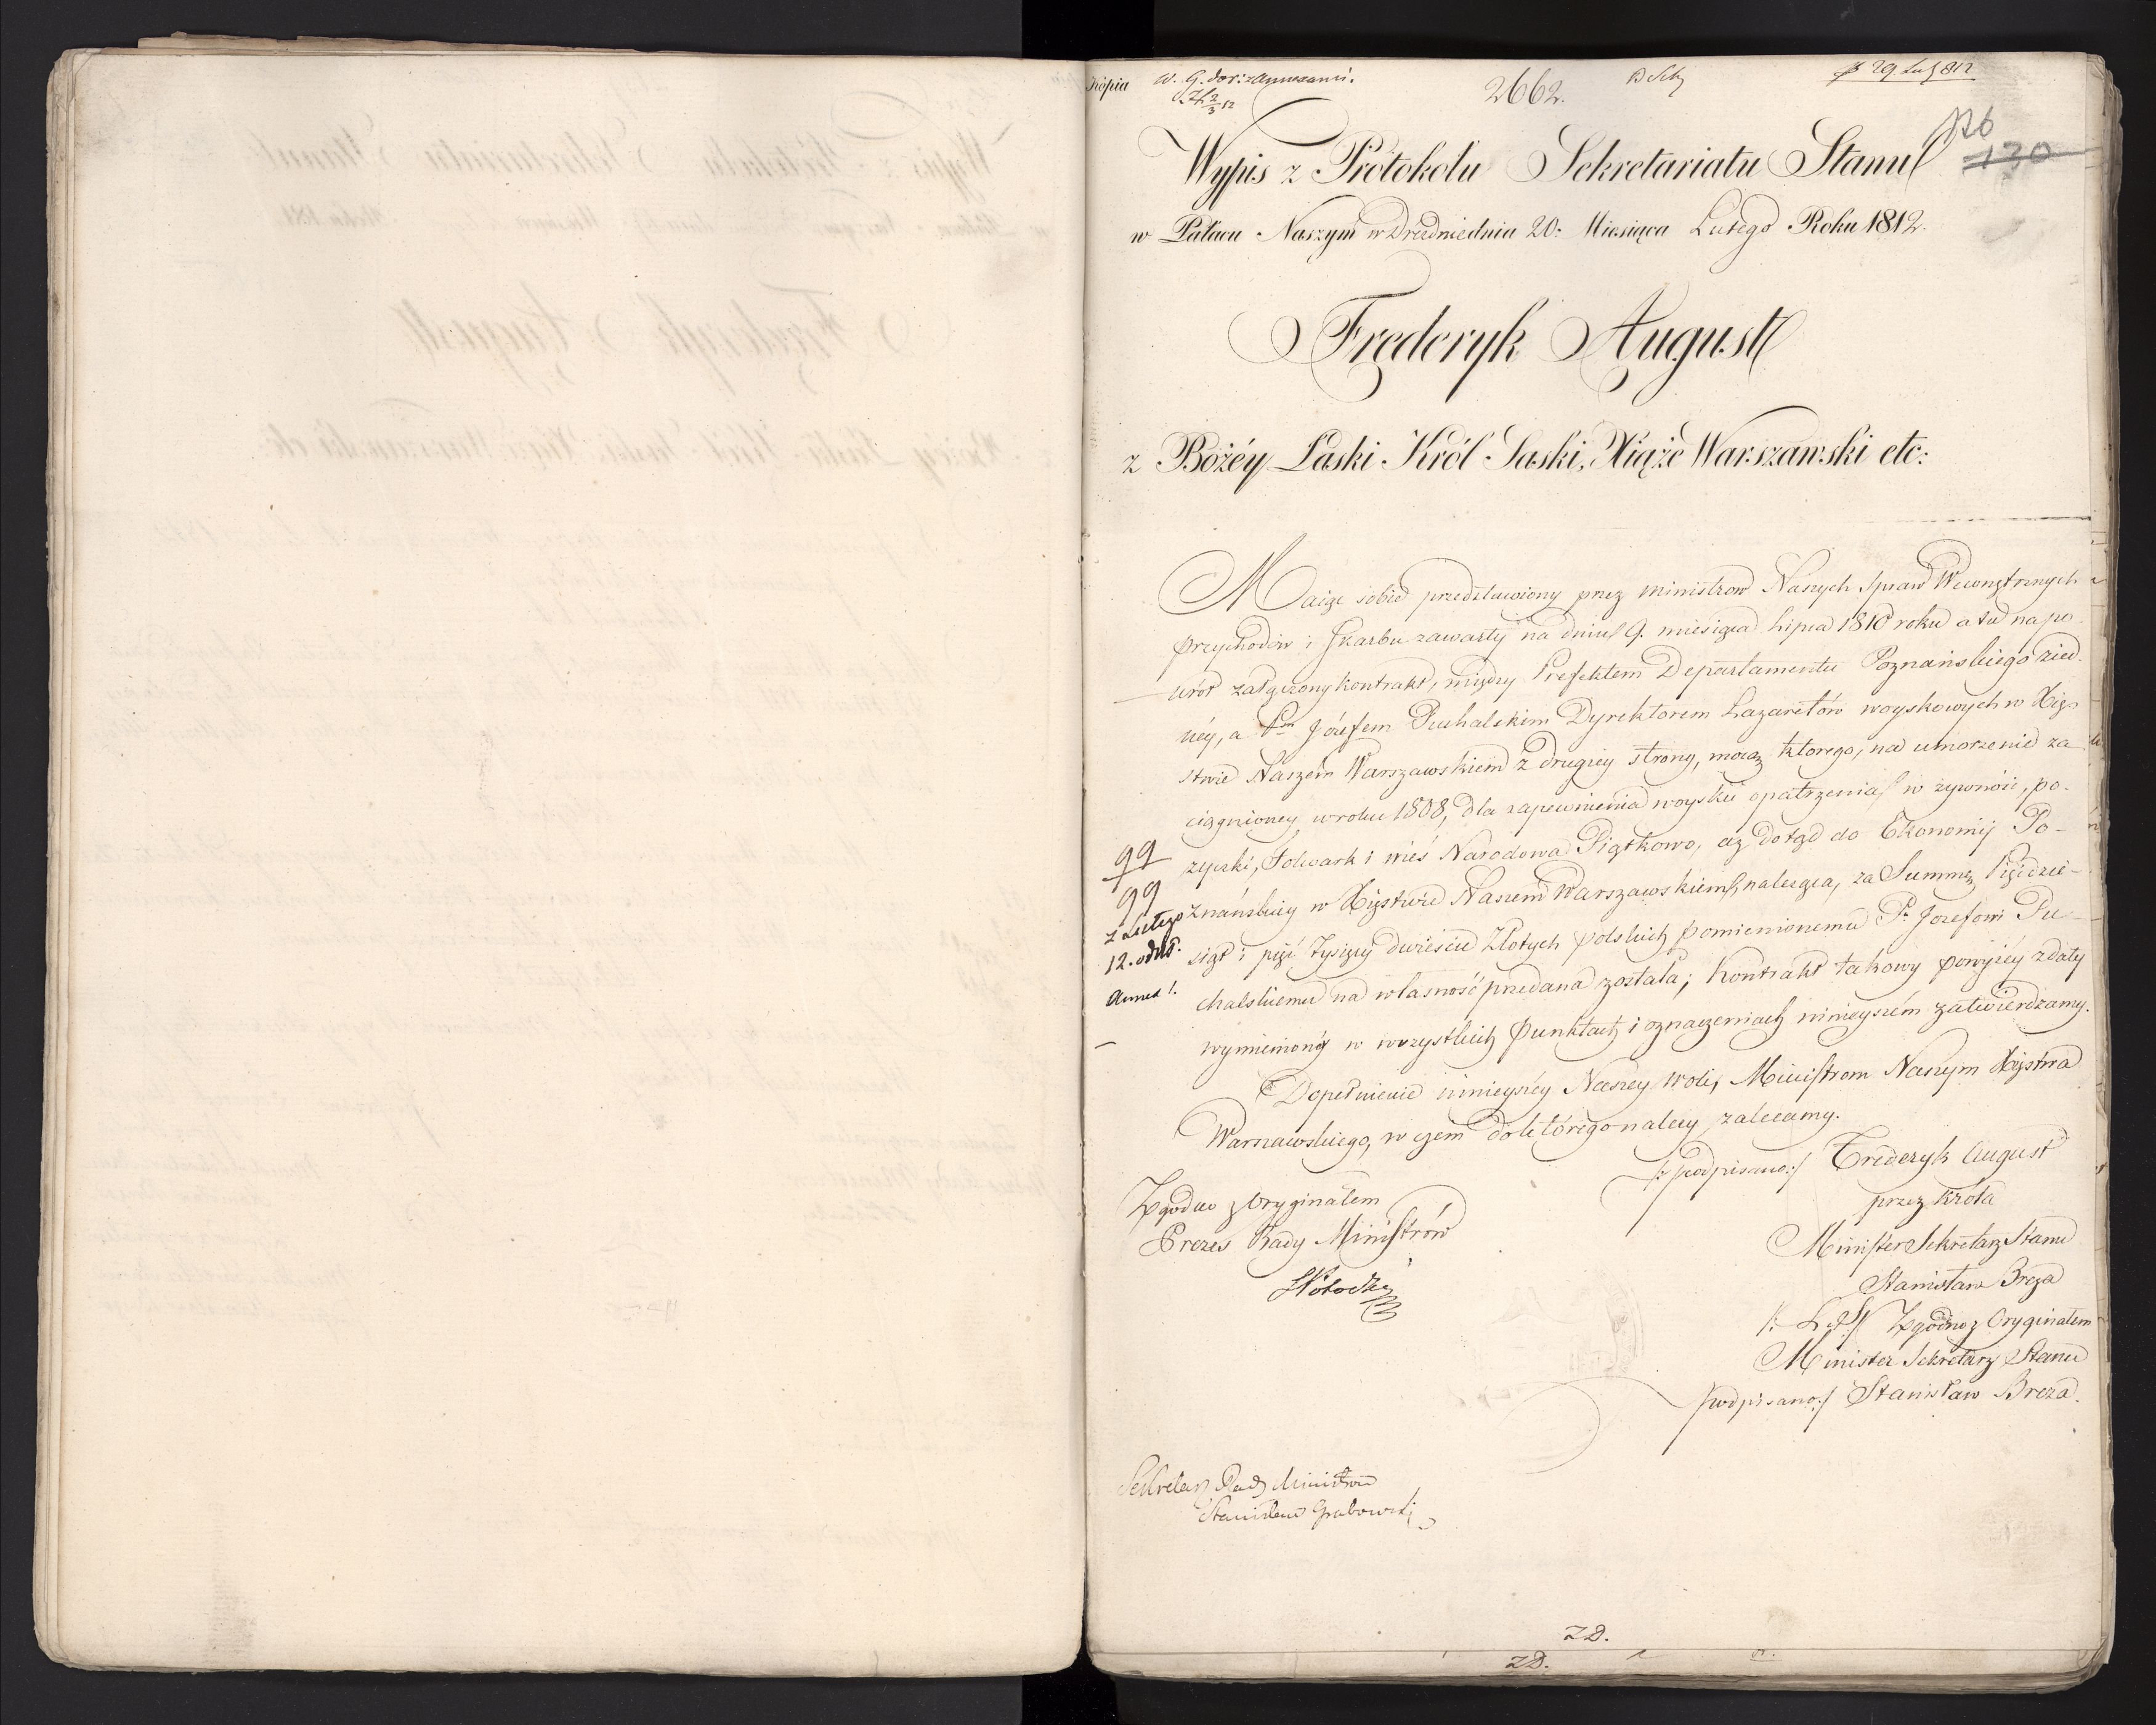 Kopia
2662.
126
130
Wypis z Protokołu Sekretariatu Stanu
w Pałacu Naszym w Dreźnie dnia 20: Miesiąca Lutego Roku 1812.
Frederyk August
z Bożéy Łaski Król Saski, Xiąże Warszawski etc:
Maiąc sobie przedstawiony przez Ministrow Naszych Spraw Wewnętrznych
Przychodów i Skarbu zawarty na dniu 9. miesiąca Lipca 1810 roku a tu na po
wrót załączony kontrakt, między Prefektem Departamentu Poznańskiego z ied-
néy, a Pm Józefem Puchalskim Dyrektorem Lazaretów woyskowych w Xię-
stwie Naszém Warszawskiem z drugiey strony, mocą ktorego, na umorzenie za-
ciągnioney w roku 1808, dla zapewnienia woysku opatrzenia w żywność, po-
życzki, Folwark i wieś Narodowa Piątkowo, aż dotąd do Ekonomij Po-
znańskiey w Xięstwie Naszem Warszawskiem należąca, za Summę Pięćdzie-
siąt i pięć tysięcy dwieście Złotych polskich pomienionemu P. Jozefowi Pu-
chalskiemu na własność przedana została; Kontrakt takowy powyżéy z daty
wymieniony w wszystkich punktach i oznaczeniach ninieyszém zatwierdzamy.
Dopełnienie ninieyszéy Naszey woli, Ministrom Naszym Xięstwa
Warszawskiego, w czem do którego należy zalecamy.
/: podpisano :/ Frederyk August
przez Króla
Minister Sekretarz Stanu
Stanisław Breza
/: L. S. :/ Zgodno z Oryginałem
Minister Sekretarz Stanu
/podpisano:/ Stanisław Breza.
99
99
z Lutego
12. odd.
Annex 1.
Zgodno z Oryginałem
Prezes Rady Ministrów
Sekretarz Rady Ministrow
Stanisław Grabowski